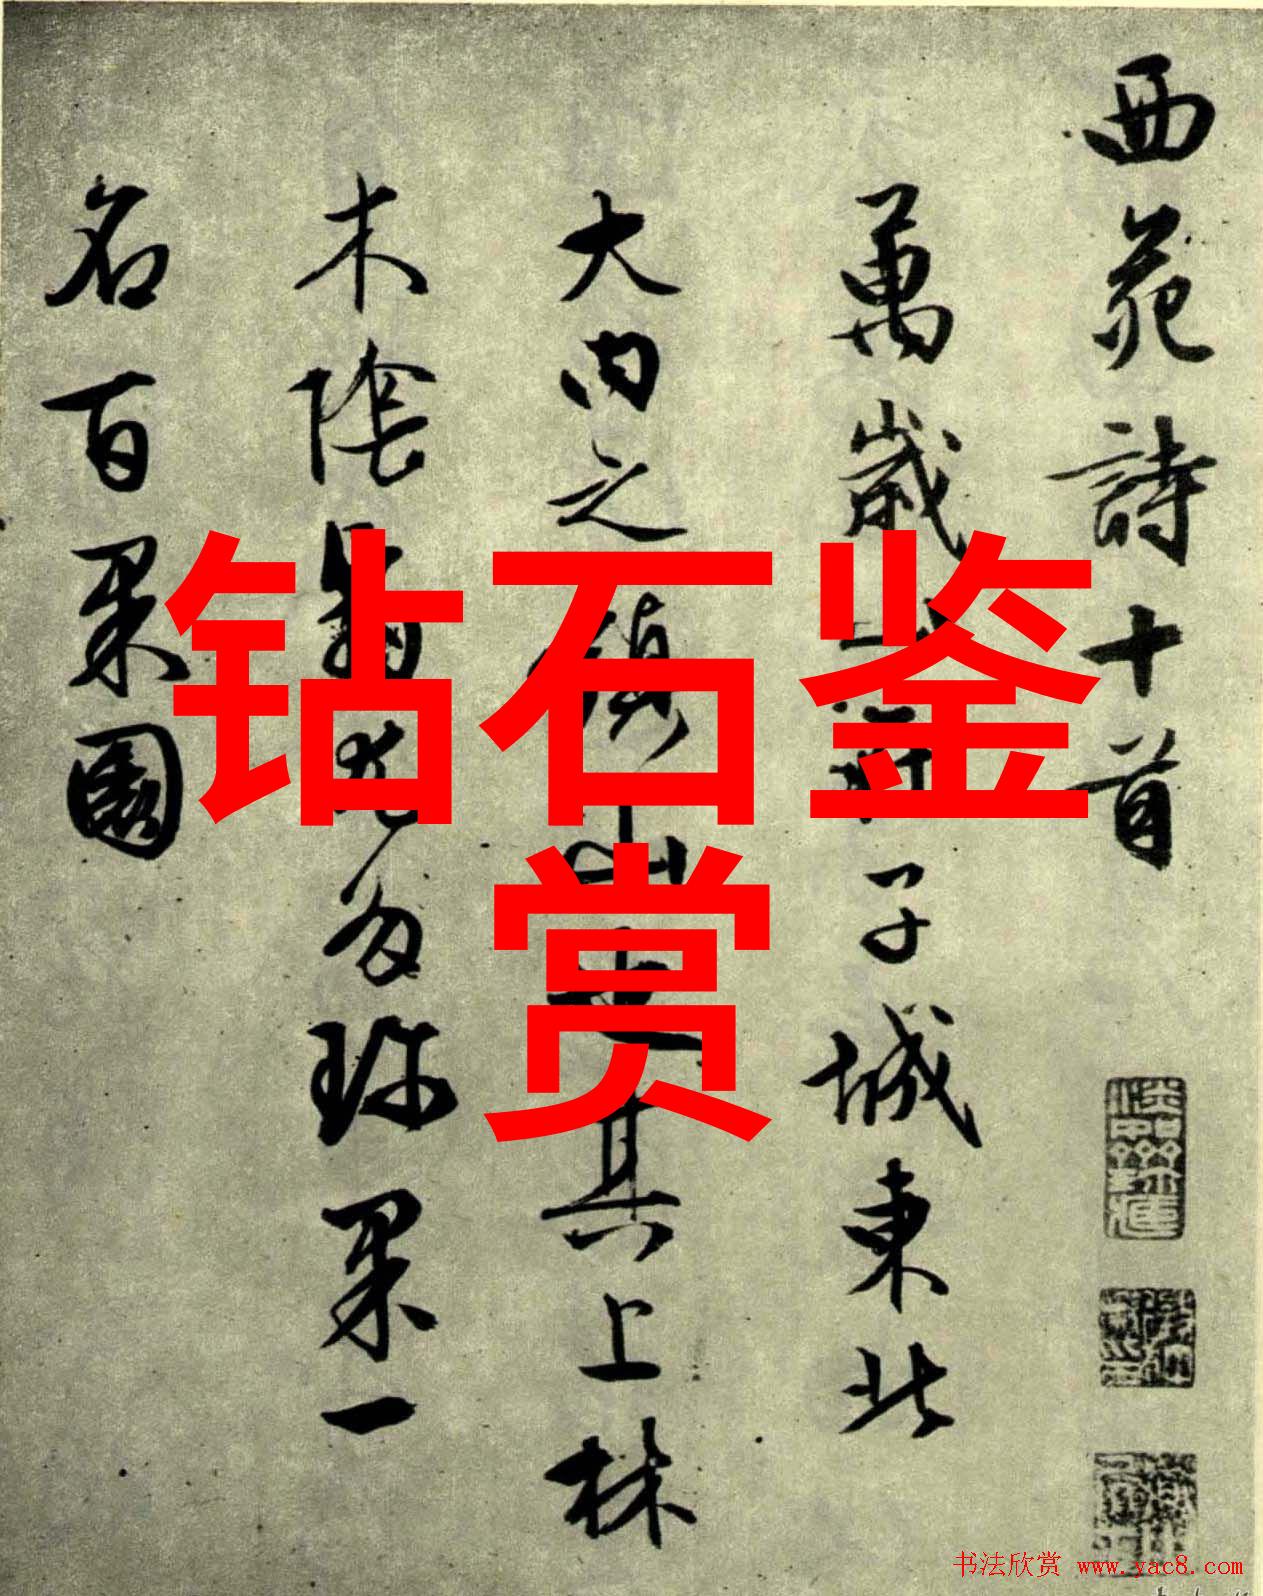 西苑詩十首
萬歲山在子城東北
大内之鎮山也其上林
木陰翳尤多珍果一
名百果園
钻石鉴
赏
书法欣赏 www.yac8.com